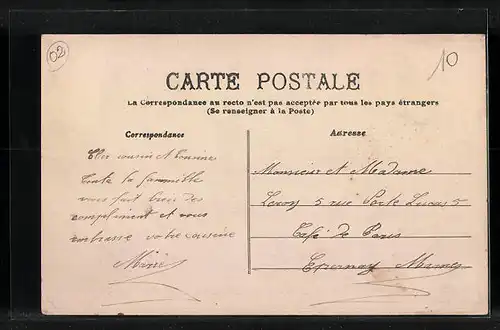 02
10
CARTE POSTALE
La Correspondance au recto n'est pas acceptée par tous les pays étrangers
(Se renseigner à la Poste)
Correspondance
Cher cousin et Cousine
toute la famille
vous fait bien des
compliment et vous
embrasse votre cousine
Adresse
Monsieur et Madame
Leroy 5 rue Porte Lucas 5
Café de Paris
Epernay Marne